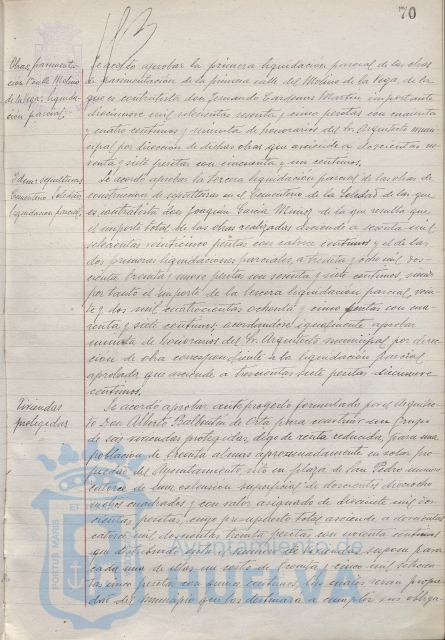 70
Obras pavimenta-
ción 1ª calle Molino
de la Vega, liquida-
ción parcial.
Se acordó aprobar la primera liquidación parcial de las obras
de pavimentación de la primera calle del Molino de la Vega de la
que es contratista don Fernando Martín importante
diecinueve mil setecientas sesenta y cinco pesetas con cuarenta
y cuatro centimos y minuta de honorarios del Sr. Arquitecto muni-
cipal por dirección de dichas obras que asciende a doscientas no-
venta y siete pesetas con cincuenta y un centimos.
Idem sepulturas
Cementerio Soledad
liquidacion parcial.
Se acordó aprobar la tercera liquidación parcial de las obras de
construccion de sepulturas en el Cementerio de la Soledad de las que
es contratista don Joaquin Garcia Munoz de la que resulta que
el importe total de las obras realizadas asciende a sesenta mil
setecientas veinticinco pesetas con catorce centimos y el de las
dos primeras liquidaciones parciales a treinta y ocho mil dos-
cientas treinta y nueve pesetas con sesenta y siete centimos, siendo
por tanto el importe de la tercera liquidación parcial, vein-
te y dos mil cuatrocientas ochenta y cinco pesetas con cua-
renta y siete centimos; acordandose igualmente aprobar
minuta de honorarios del Sr. Arquitecto municipal por direc-
cion de obra correspondiente a la liquidación parcial
aprobada que asciende a trescientas siete pesetas diecinueve
centimos.
Viviendas
protegidas
Se acordó aprobar anteproyecto formulado por el Arquitec-
to Don Alberto Balbontin de Orta para construir un grupo
de seis viviendas protegidas, digo de renta reducida, para una
poblacion de treinta almas aproximadamente en solar pro-
piedad del Ayuntamiento, sito en plaza de San Pedro numero
catorce de una extension superficial de doscientos dieciocho
metros cuadrados y con valor asignado de diecisiete mil dos-
cientas pesetas, cuyo presupuesto total asciende a doscientas
catorce mil doscientas treinta pesetas con noventa centimos
que distribuido entre el numero de viviendas supone para
cada una de ellas un coste de treinta y cinco mil setecien-
tas cinco pesetas con quince centimos, las cuales seran propie-
dad del municipio que las destinará a cumplir sus obliga-
PORTUS MARIS ET
Ayuntamiento de
HUELVA